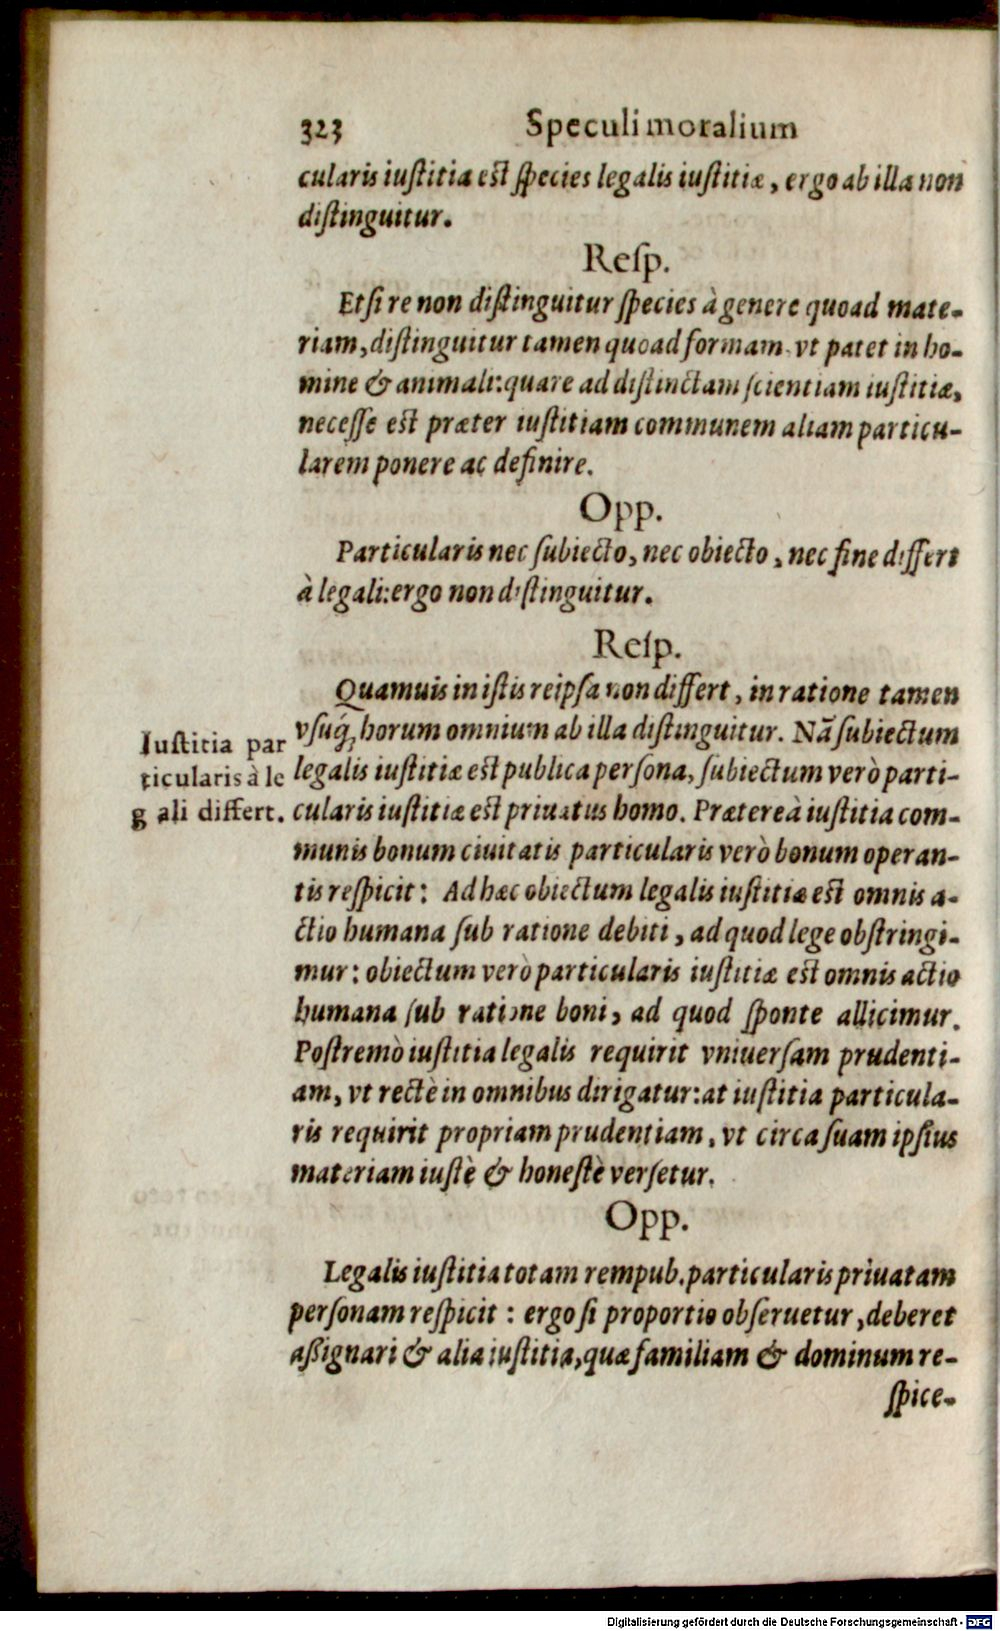 323 Speculi moralium
cularis iustitia est species legalis iustitiæ, ergo ab illa non
distinguitur.
Resp.
Etsi re non distinguitur species à genere quoad mate-
riam, distinguitur tamen quoad formam, vt patet in ho-
mine & animali: quare ad distinctam scientiam iustitiæ,
necesse est præter iustitiam communem aliam particu-
larem ponere ac definire.
Opp.
Particularis nec subiecto, nec obiecto, nec fine differt
à legali: ergo non distinguitur.
Resp.
Quamuis in istis reipsa non differt, in ratione tamen
vsuq́; horum omnium ab illa distinguitur. Nã subiectum
legalis iustitiæ est publica persona, subiectum verò parti-
cularis iustitiæ est priuatus homo. Prætereà iustitia com-
munis bonum ciuitatis particularis verò bonum operan-
tis respicit: Ad hæc obiectum legalis iustitiæ est omnis a-
ctio humana sub ratione debiti, ad quod lege obstringi-
mur: obiectum verò particularis iustitiæ est omnis actio
humana sub ratione boni, ad quod sponte allicimur.
Postremò iustitia legalis requirit vniuersam prudenti-
am, vt rectè in omnibus dirigatur: at iustitia particula-
ris requirit propriam prudentiam, vt circa suam ipsius
materiam iustè & honestè versetur.
Iustitia par
ticularis à le
gali differt.
Opp.
Legalis iustitia totam rempub. particularis priuatam
personam respicit: ergo si proportio obseruetur, deberet
aßignari & alia iustitia, quæ familiam & dominum re-
spice-
Digitalisierung gefördert durch die Deutsche Forschungsgemeinschaft - DFG